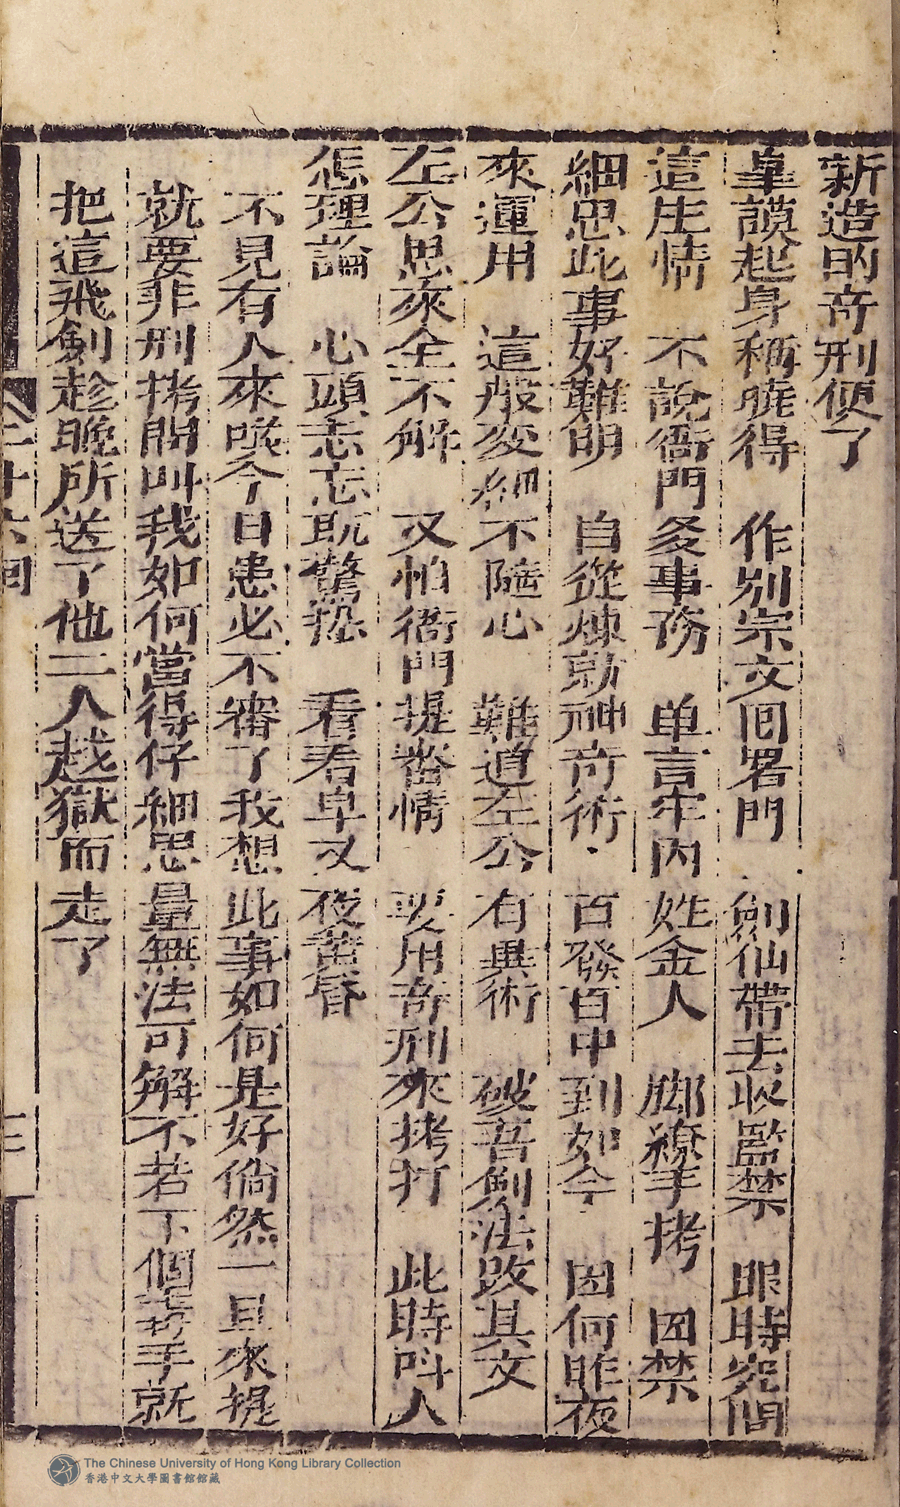 新造的奇刑便了
皐謨起身稱曉得　作别宗文囬署門　劍仙帶去收監禁　即時究問
這庄情　不說衙門多事務　单言牢內姓金人　脚繚手拷囚禁
細思此事好難明　自從煉就神奇術　百發百中到如今　因何昨夜
來運用　這般变細不隨心　難道左公有異術　破吾劍法改其文
左公思來全不解　又怕衙門提審情　要用奇刑來拷打　此時呌人
怎理論　心頭忐忑耽驚恐　看看早又夜黄昏
不見有人來喚今日患必不審了我想此事如何是好倘然一旦來提
就要非刑拷問叫我如何當得仔細思量無法可解不若下個毒手就
把這飛劍趁晚所送了他二人越獄而走了
二十六囬
十二
The Chinese University of Hong Kong Library Collection
香港中文大學圖書館館藏